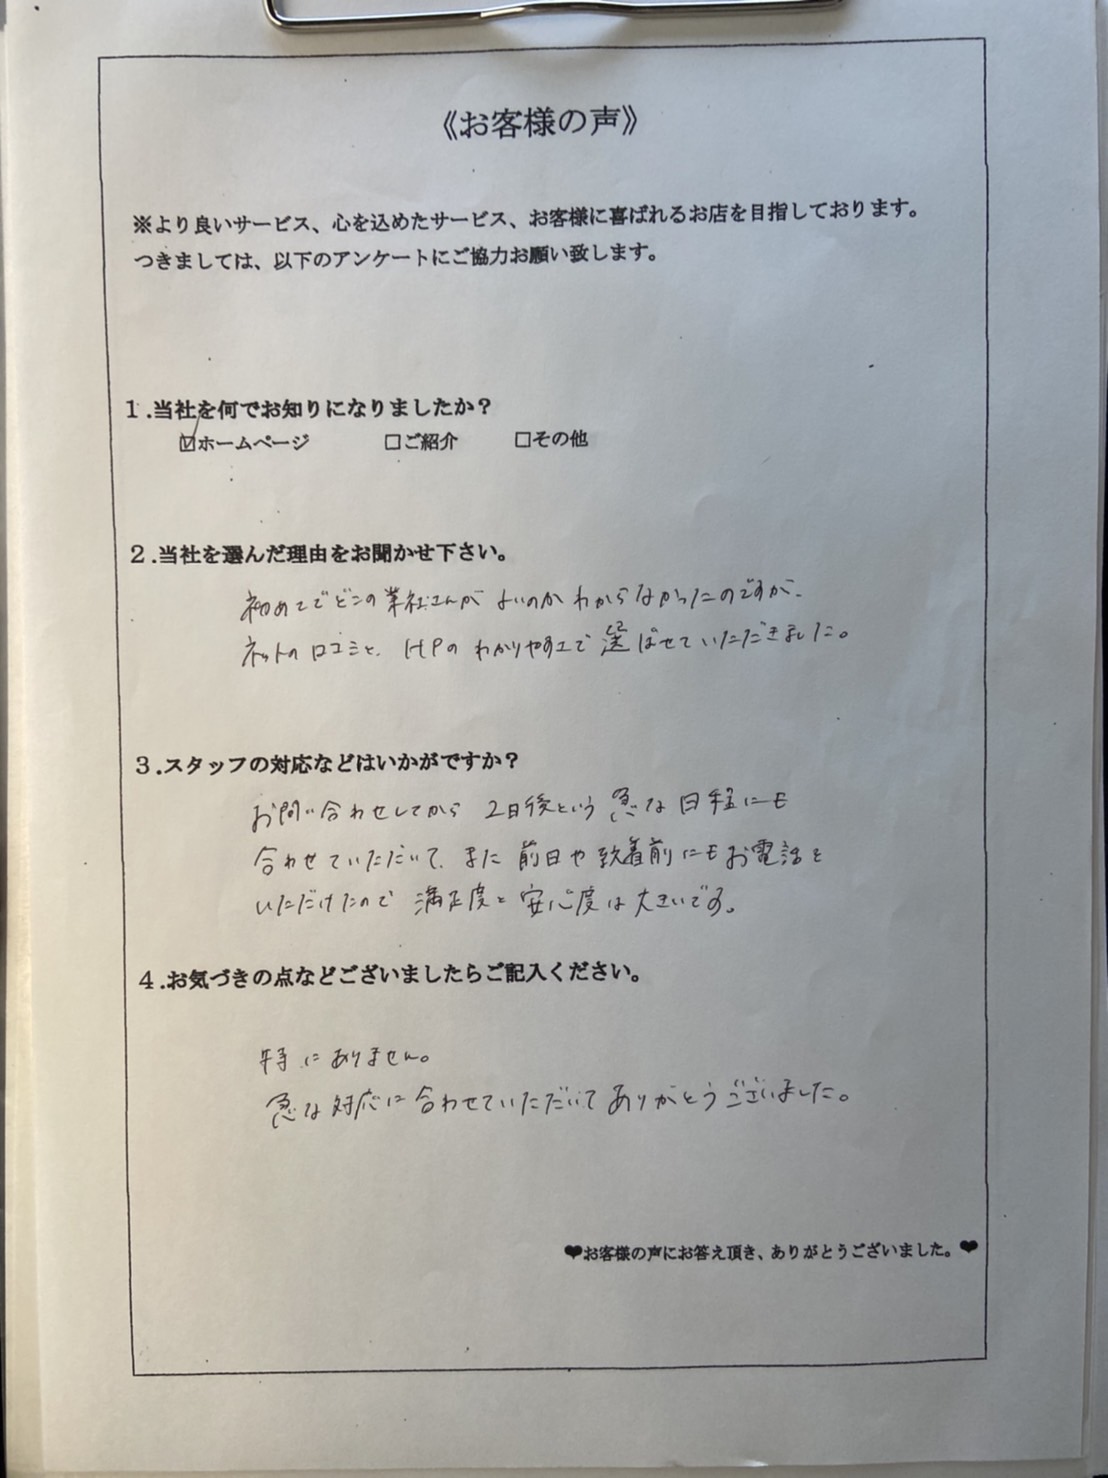 《お客様の声》
※より良いサービス、心を込めたサービス、お客様に喜ばれるお店を目指しております。
つきましては、以下のアンケートにご協力お願い致します。
１.当社を何でお知りになりましたか？
☑ホームページ □ご紹介 □その他
２.当社を選んだ理由をお聞かせ下さい。
初めてでどこの業社さんがよいのかわからなかったのですが、
ネットの口コミと、HPのわかりやすさで選ばせていただきました。
３.スタッフの対応などはいかがですか？
お問い合わせしてから2日後という急な日程にも
合わせていただいて、また前日や到着前にもお電話を
いただけたので満足度と安心度は大きいです。
４.お気づきの点などございましたらご記入ください。
特にありません。
急な対応に合わせていただいてありがとうございました。
❤お客様の声にお答え頂き、ありがとうございました。❤